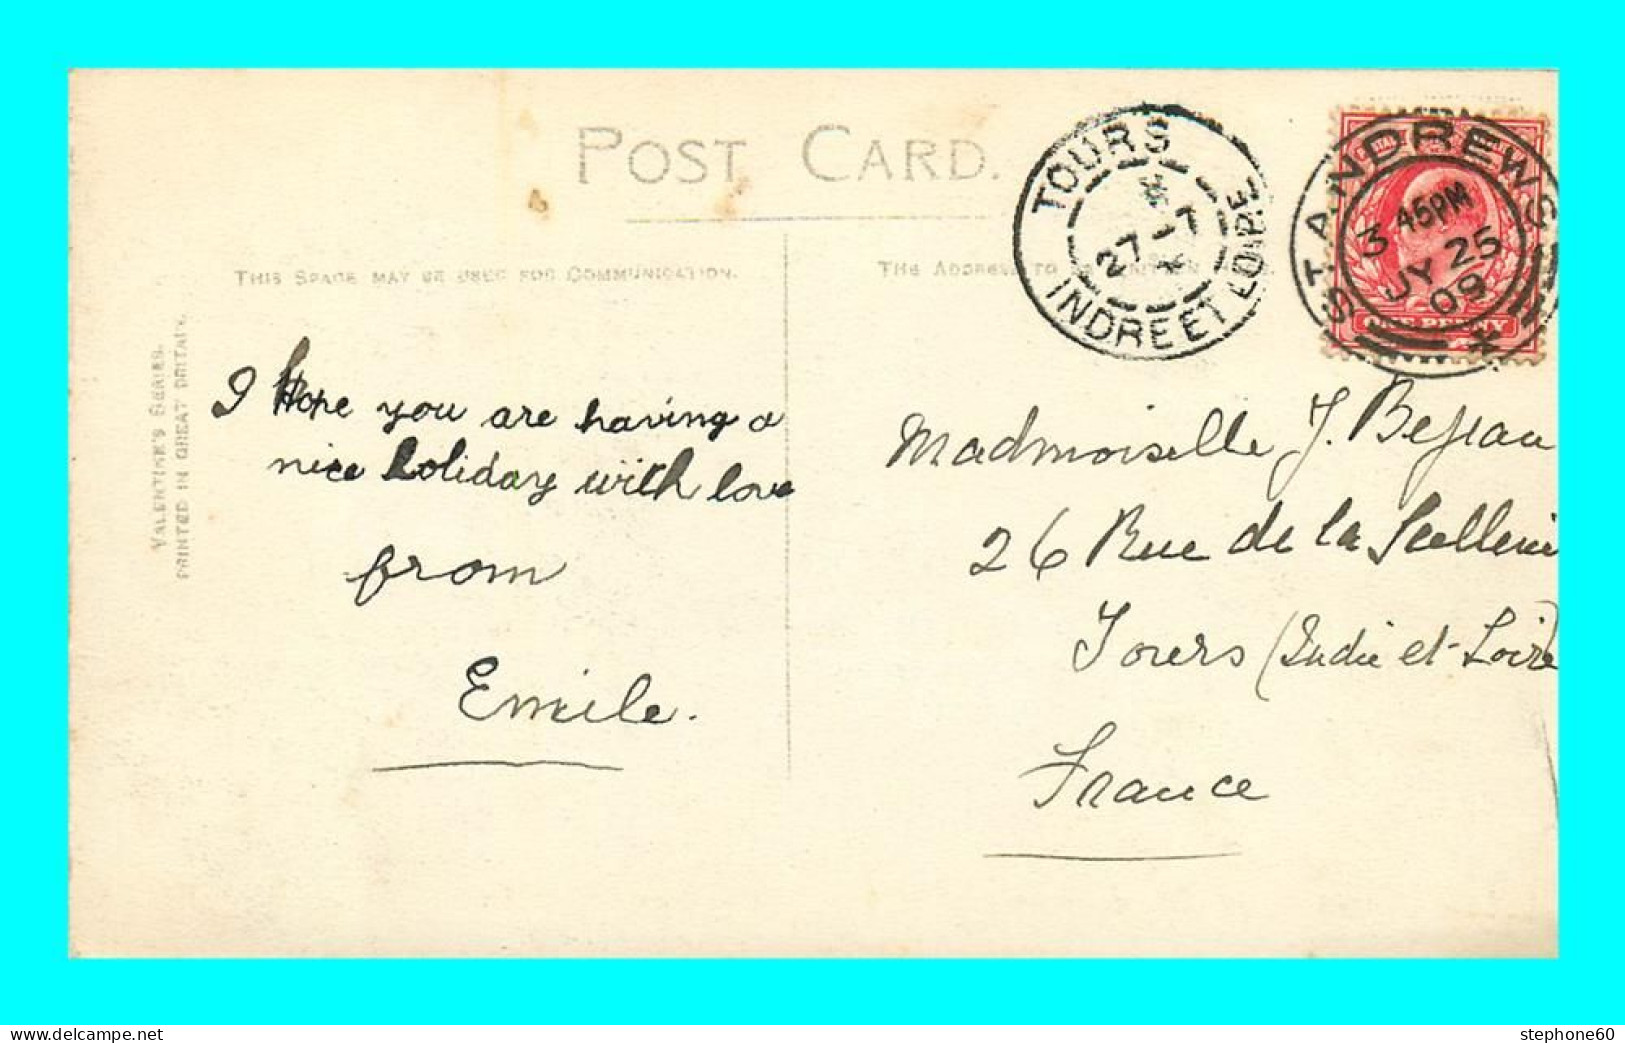 POST CARD.
THIS SPACE MAY BE USED FOR COMMUNICATION.
THE ADDRESS TO BE WRITTEN HERE.
VALENTINE'S SERIES.
PRINTED IN GREAT BRITAIN.
TOURS
27-7
INDRE ET LOIRE
ST ANDREWS
3 45PM
JY 25
09
ONE PENNY
I Hope you are having a
nice holiday with love
from
Emile.
Madmoiselle J.
26 Rue de la
Tours (Indre et-Loire)
France
www.delcampe.net
stephone60